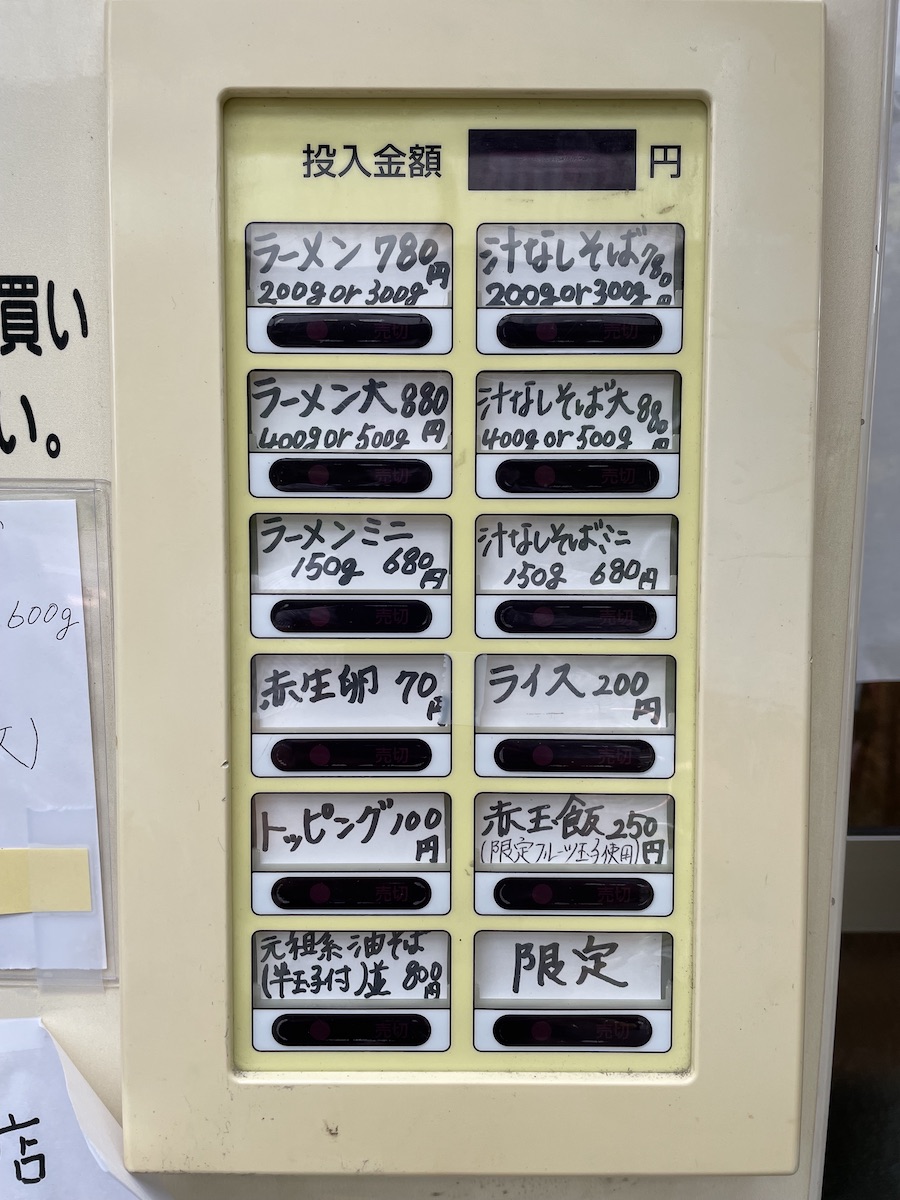 投入金額 円
ラーメン 780円
200g or 300g
汁なしそば 780円
200g or 300g
ラーメン大 880円
400g or 500g
汁なしそば大 880円
400g or 500g
ラーメンミニ
150g 680円
汁なしそばミニ
150g 680円
赤生卵 70円
ライス 200円
トッピング 100円
赤玉飯 250円
(限定フルーツ玉子使用)
元祖系油そば
(半玉子付)並 800円
限定
売切
売切
売切
売切
売切
売切
売切
売切
売切
売切
売切
売切
買い
い。
600g
店